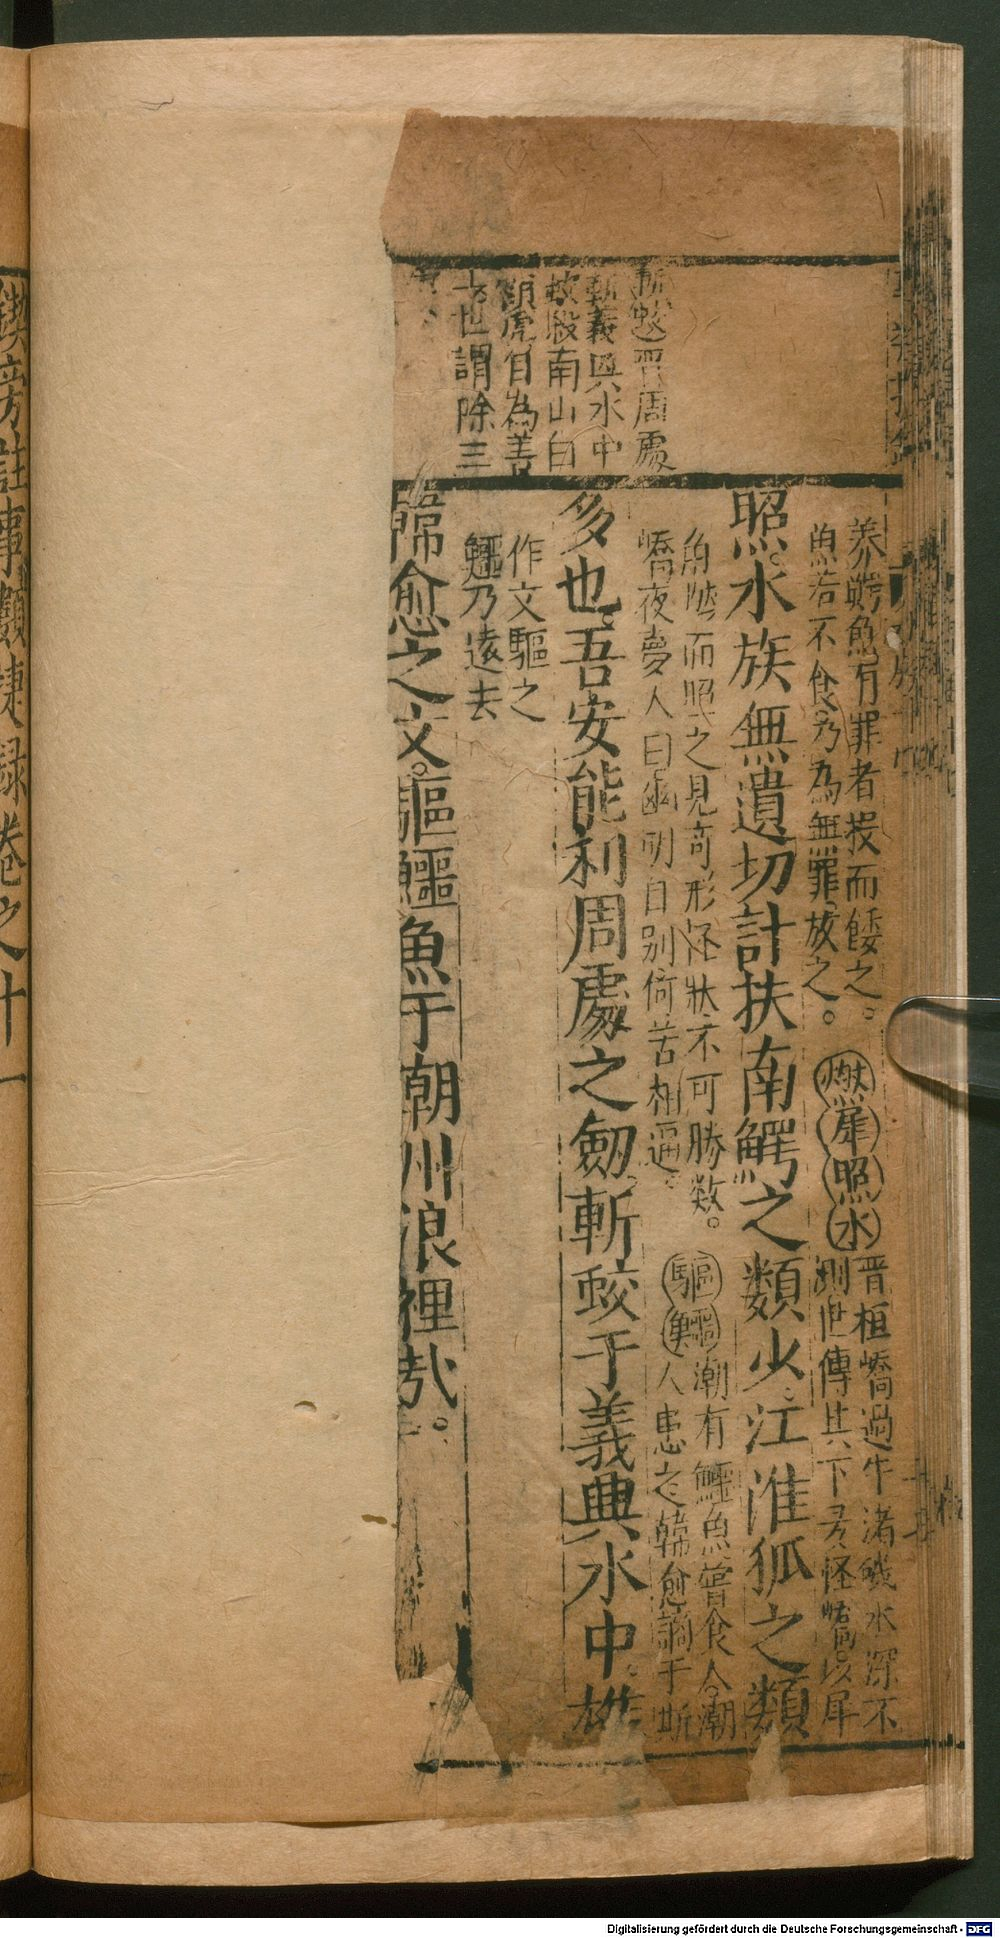 斬蛟晋周處
義興水中
蛟殺南山白
額虎自為善
世謂除三
養鰐魚有罪者投而餧之。
魚若不食乃為無罪放之。
燃犀照水
晋桓嶠過牛渚磯水深不
測世傳其下多怪嶠以犀
照。水族無遺切計扶南鰐之類少。江淮狐之類
角燃而照之見奇形怪狀不可勝数。
嶠夜夢人曰幽明自別何苦相逼。
驅鱷魚
潮有鱷魚嘗食人。潮
人患之韓愈謫于斯
多也。吾安能利周處之劒斬蛟于義興水中。雄
作文驅之
鱷乃遠去
韓愈之文。驅鱷魚于潮州浪裡哉。
鍥旁註事類捷録卷之十一
Digitalisierung gefördert durch die Deutsche Forschungsgemeinschaft - DFG